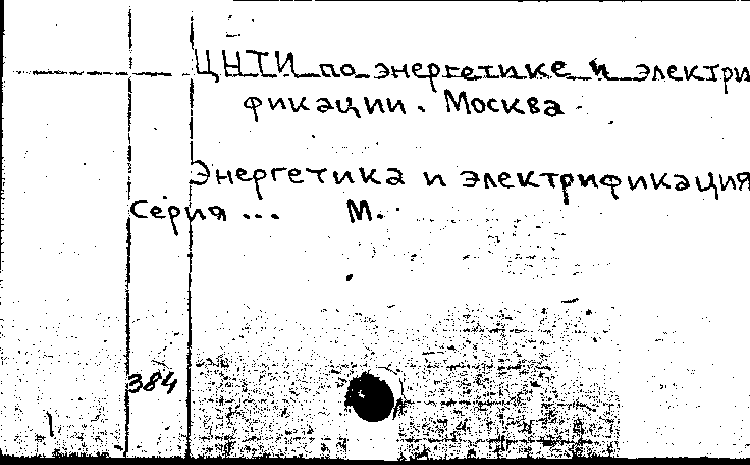 ЦНТИ по энергетике и электри
фикации. Москва
Энергетика и электрификация
Серия ... М.
384